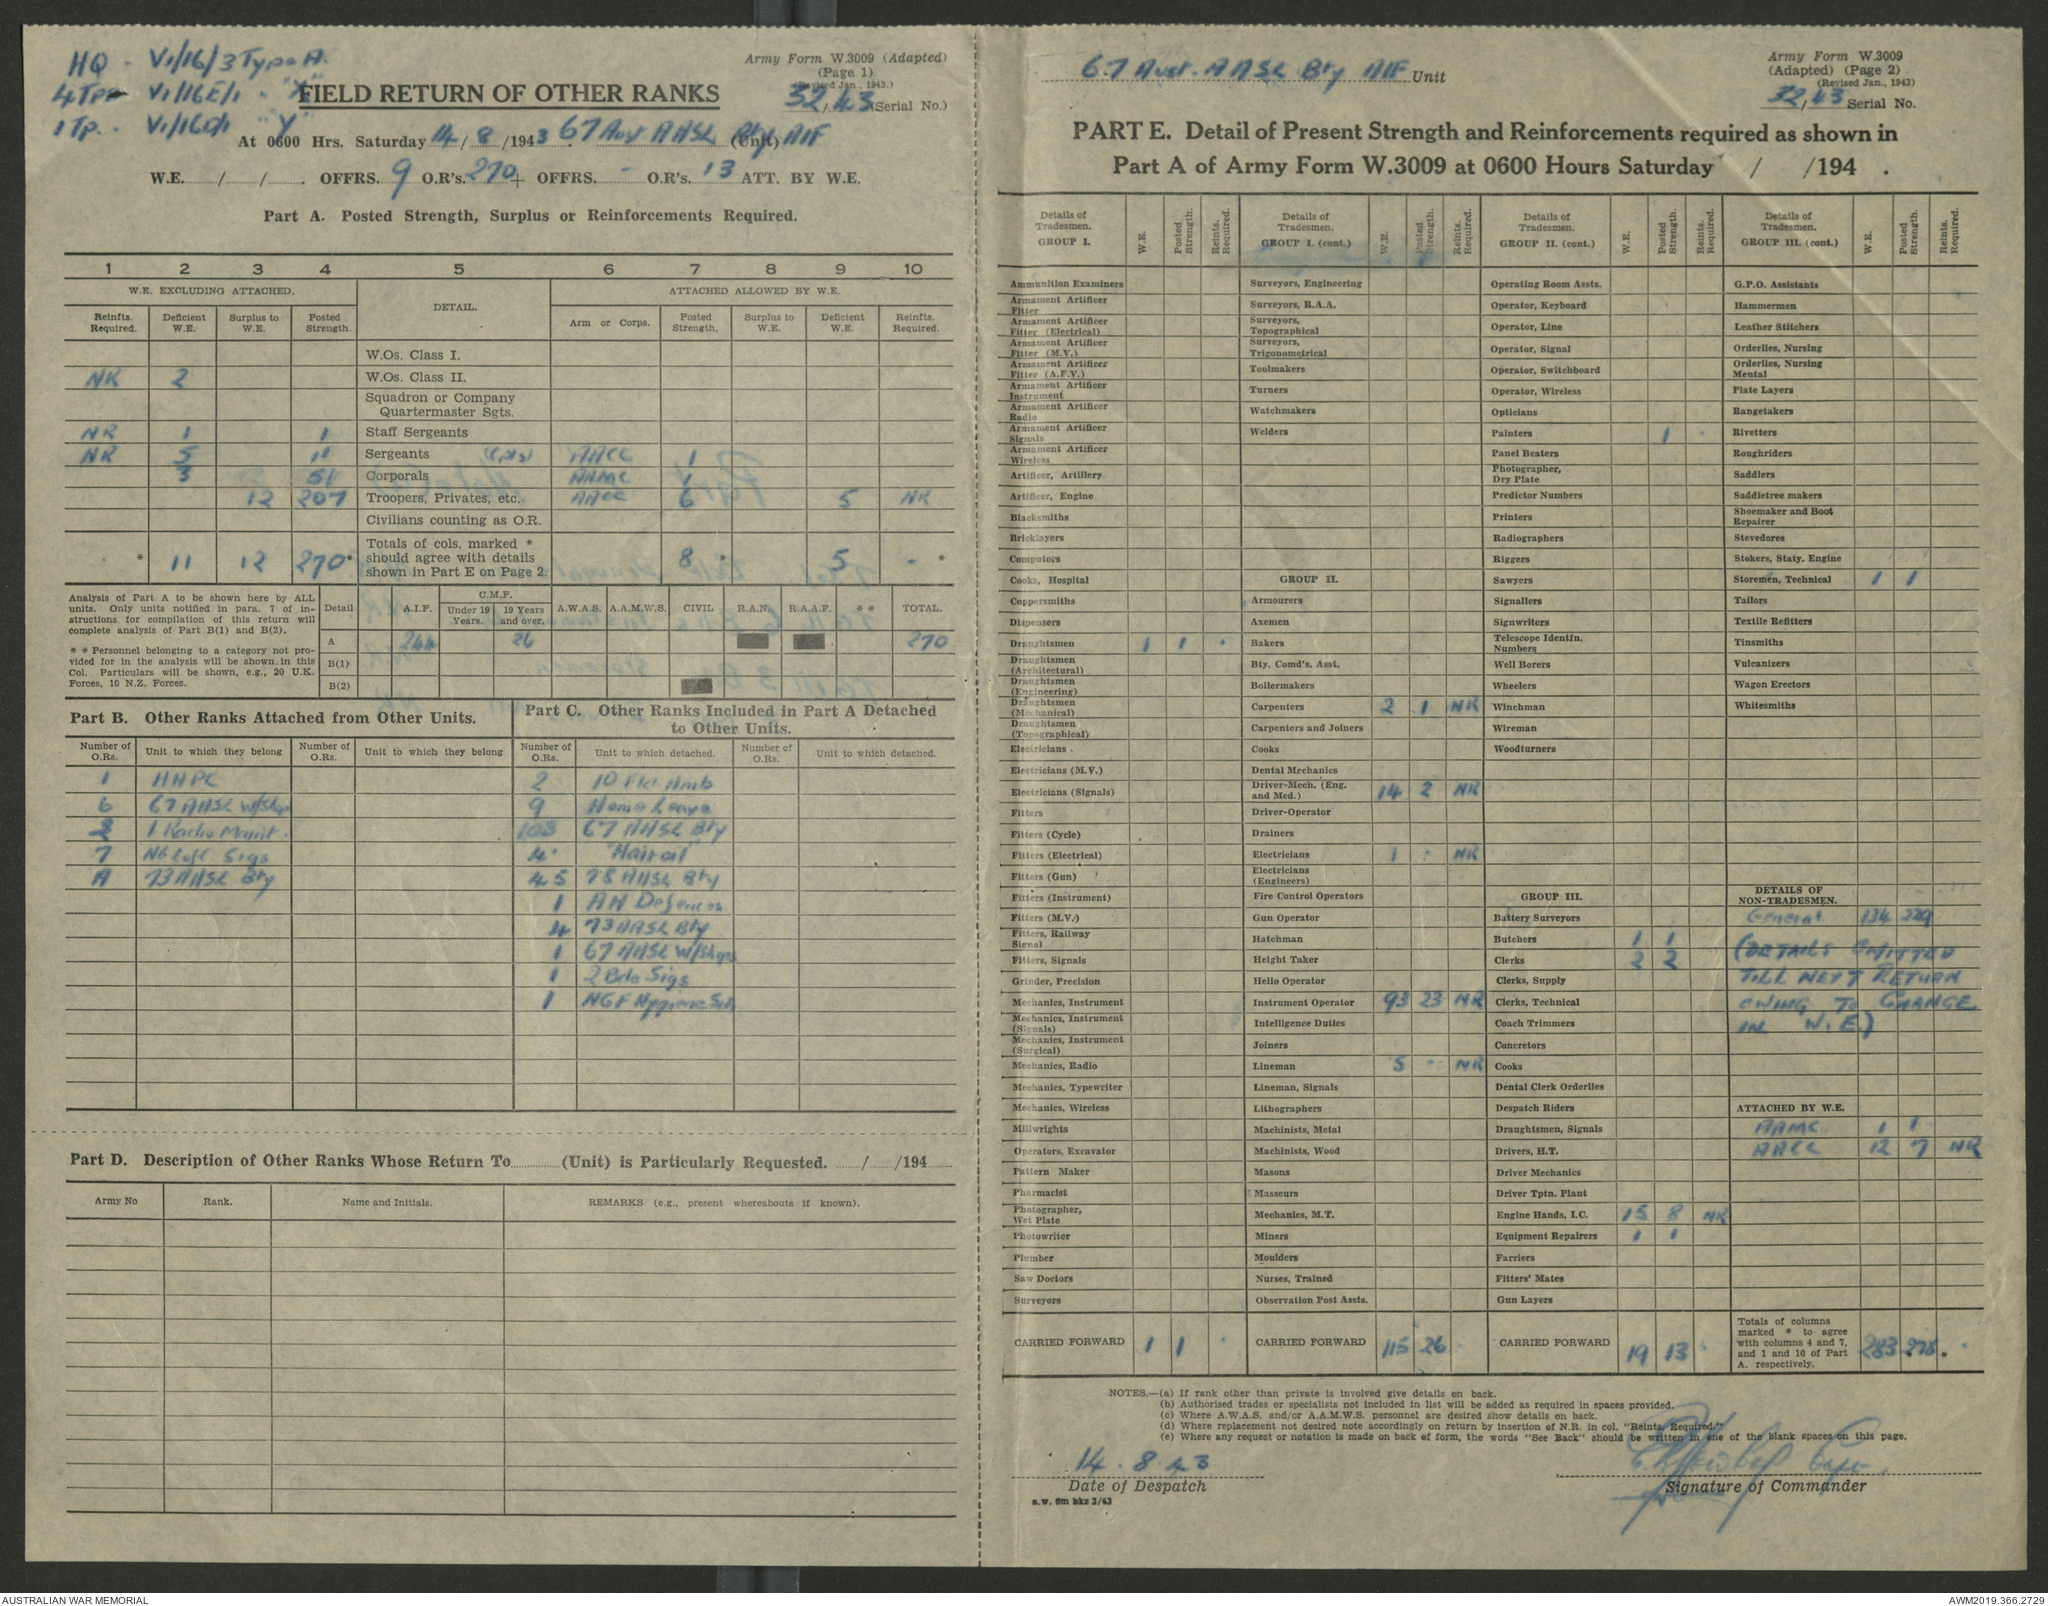 HQ - V1/16/3 Type A.
4 Tps V1/16E/1 - "X"
1 Tp. - V1/16D/1 "Y"
Army Form W.3009 (Adapted)
(Page 1)
(Revised Jan., 1943.)
32/43 (Serial No.)
FIELD RETURN OF OTHER RANKS
At 0600 Hrs. Saturday 14/8/1943. 67 Aust AASL Bty AIF (Unit)
W.E. / / . OFFRS. 9 O.R's. 270 + OFFRS. - O.R's. 13 ATT. BY W.E.
Part A. Posted Strength, Surplus or Reinforcements Required.
1 2 3 4 5 6 7 8 9 10
W.E. EXCLUDING ATTACHED. DETAIL. ATTACHED ALLOWED BY W.E.
Reinfts. Required. Deficient W.E. Surplus to W.E. Posted Strength. Arm or Corps. Posted Strength. Surplus to W.E. Deficient W.E. Reinfts. Required.
W.Os. Class I.
NR 2 W.Os. Class II.
Squadron or Company
Quartermaster Sgts.
NR 1 1 Staff Sergeants
NR 5 11 Sergeants (Cpls) AACC 1
3 51 Corporals AAMC 1
12 207 Troopers, Privates, etc. AACC 6 5 NR
Civilians counting as O.R.
Totals of cols. marked *
should agree with details
shown in Part E on Page 2.
* 11 12 270* 8 * 5 - *
Analysis of Part A to be shown here by ALL
units. Only units notified in para. 7 of in-
structions for compilation of this return will
complete analysis of Part B(1) and B(2).
* * Personnel belonging to a category not pro-
vided for in the analysis will be shown in this
Col. Particulars will be shown, e.g., 20 U.K.
Forces, 10 N.Z. Forces.
Detail A.I.F. C.M.F. Under 19 Years. 19 Years and over. A.W.A.S. A.A.M.W.S. CIVIL R.A.N. R.A.A.F. * * TOTAL.
A 244 26 270
B(1)
B(2)
Part B. Other Ranks Attached from Other Units.
Number of O.Rs. Unit to which they belong Number of O.Rs. Unit to which they belong
1 AAPC
6 67 AASL W/Shop
2 1 Radio Maint.
7 NG L of C Sigs
A 73 AASL Bty
Part C. Other Ranks Included in Part A Detached
to Other Units.
Number of O.Rs. Unit to which detached. Number of O.Rs. Unit to which detached.
2 10 Fld Amb
9 Home Leave
103 67 AASL Bty
4 "Hairoil"
45 78 AASL Bty
1 AA Defences
4 73 AASL Bty
1 67 AASL W/Shops
1 2 Bde Sigs
1 NGF Hygiene Sch
Part D. Description of Other Ranks Whose Return To (Unit) is Particularly Requested. / /194
Army No Rank. Name and Initials. REMARKS (e.g., present whereabouts if known).
67 Aust. AASL Bty AIF Unit
Army Form W.3009
(Adapted) (Page 2)
(Revised Jan., 1943)
32/43 Serial No.
PART E. Detail of Present Strength and Reinforcements required as shown in
Part A of Army Form W.3009 at 0600 Hours Saturday / /194 .
Details of Tradesmen. GROUP I. W.E. Posted Strength. Reints. Required.
Ammunition Examiners
Armament Artificer Fitter
Armament Artificer Fitter (Electrical)
Armament Artificer Fitter (M.V.)
Armament Artificer Fitter (A.F.V.)
Armament Artificer Instrument
Armament Artificer Radio
Armament Artificer Signals
Armament Artificer Wireless
Artificer, Artillery
Artificer, Engine
Blacksmiths
Bricklayers
Computors
Cooks, Hospital
Coppersmiths
Dispensers
Draughtsmen 1 1 -
Draughtsmen (Architectural)
Draughtsmen (Engineering)
Draughtsmen (Mechanical)
Draughtsmen (Topographical)
Electricians
Electricians (M.V.)
Electricians (Signals)
Fitters
Fitters (Cycle)
Fitters (Electrical)
Fitters (Gun)
Fitters (Instrument)
Fitters (M.V.)
Fitters, Railway Signal
Fitters, Signals
Grinder, Precision
Mechanics, Instrument
Mechanics, Instrument (Signals)
Mechanics, Instrument (Surgical)
Mechanics, Radio
Mechanics, Typewriter
Mechanics, Wireless
Millwrights
Operators, Excavator
Pattern Maker
Pharmacist
Photographer, Wet Plate
Photowriter
Plumber
Saw Doctors
Surveyors
CARRIED FORWARD 1 1 -
Details of Tradesmen. GROUP I. (cont.) W.E. Posted Strength. Reints. Required.
Surveyors, Engineering
Surveyors, R.A.A.
Surveyors, Topographical
Surveyors, Trigonometrical
Toolmakers
Turners
Watchmakers
Welders
GROUP II.
Armourers
Axemen
Bakers
Bty. Comd's. Asst.
Boilermakers
Carpenters 2 1 NR
Carpenters and Joiners
Cooks
Dental Mechanics
Driver-Mech. (Eng. and Med.) 14 2 NR
Driver-Operator
Drainers
Electricians 1 - NR
Electricians (Engineers)
Fire Control Operators
Gun Operator
Hatchman
Height Taker
Helio Operator
Instrument Operator 93 23 NR
Intelligence Duties
Joiners
Lineman 5 - NR
Lineman, Signals
Lithographers
Machinists, Metal
Machinists, Wood
Masons
Masseurs
Mechanics, M.T.
Miners
Moulders
Nurses, Trained
Observation Post Assts.
CARRIED FORWARD 115 26
Details of Tradesmen. GROUP II. (cont.) W.E. Posted Strength. Reints. Required.
Operating Room Assts.
Operator, Keyboard
Operator, Line
Operator, Signal
Operator, Switchboard
Operator, Wireless
Opticians
Painters 1 -
Panel Beaters
Photographer, Dry Plate
Predictor Numbers
Printers
Radiographers
Riggers
Sawyers
Signallers
Signwriters
Telescope Identfn. Numbers
Well Borers
Wheelers
Winchman
Wireman
Woodturners
GROUP III.
Battery Surveyors
Butchers 1 1
Clerks 2 2
Clerks, Supply
Clerks, Technical
Coach Trimmers
Concretors
Cooks
Dental Clerk Orderlies
Despatch Riders
Draughtsmen, Signals
Drivers, H.T.
Driver Mechanics
Driver Tptn. Plant
Engine Hands, I.C. 15 8 NR
Equipment Repairers 1 1
Farriers
Fitters' Mates
Gun Layers
CARRIED FORWARD 19 13
Details of Tradesmen. GROUP III. (cont.) W.E. Posted Strength. Reints. Required.
G.P.O. Assistants
Hammermen
Leather Stitchers
Orderlies, Nursing
Orderlies, Nursing Mental
Plate Layers
Rangetakers
Rivetters
Roughriders
Saddlers
Saddletree makers
Shoemaker and Boot Repairer
Stevedores
Stokers, Staty. Engine
Storemen, Technical 1 1
Tailors
Textile Refitters
Tinsmiths
Vulcanizers
Wagon Erectors
Whitesmiths
DETAILS OF NON-TRADESMEN.
General 134 229
(DETAILS OMITTED
TILL NEXT RETURN
OWING TO CHANGE
IN W.E.)
ATTACHED BY W.E.
AAMC 1 1
AACC 12 7 NR
Totals of columns
marked * to agree
with columns 4 and 7,
and 1 and 10 of Part
A. respectively.
283 278 *
NOTES.—(a) If rank other than private is involved give details on back.
(b) Authorised trades or specialists not included in list will be added as required in spaces provided.
(c) Where A.W.A.S. and/or A.A.M.W.S. personnel are desired show details on back.
(d) Where replacement not desired note accordingly on return by insertion of N.R. in col. "Reints. Required."
(e) Where any request or notation is made on back of form, the words "See Back" should be written in one of the blank spaces on this page.
14.8.43
Date of Despatch
Capt.
Signature of Commander
a.w. 6m bks 3/43
AUSTRALIAN WAR MEMORIAL
AWM2019.366.2729